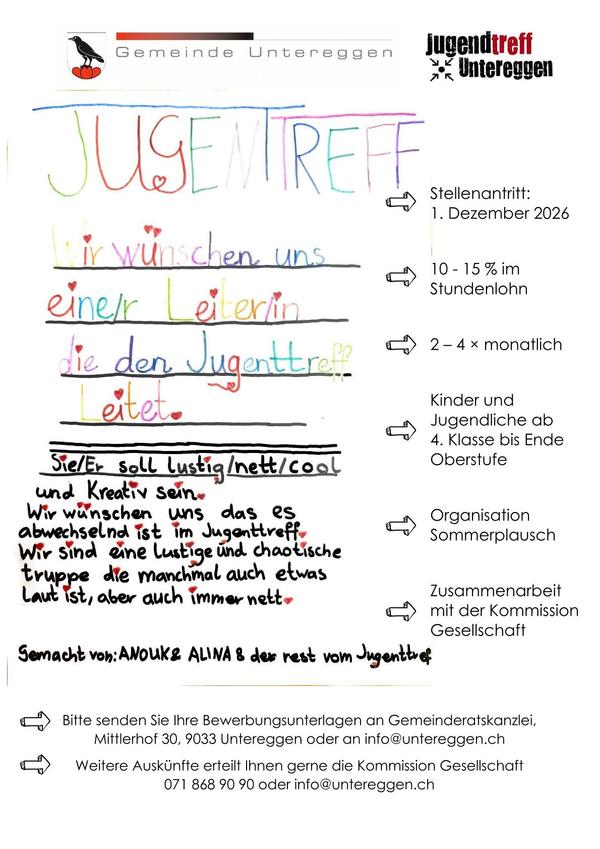 Gemeinde Untereggen
jugendtreff
Untereggen
JUGENTTREFF
Wir wünschen uns
eine/r Leiter/in
die den Jugenttreff
Leitet.
Sie/Er soll lustig/nett/cool
und Kreativ sein.
Wir wünschen uns das es
abwechselnd ist im Jugenttreff.
Wir sind eine Lustige und chaotische
truppe die manchmal auch etwas
Laut ist, aber auch immer nett.
Gemacht von: ANOUK & ALINA & der rest vom Jugenttref
Stellenantritt:
1. Dezember 2026
10 - 15 % im
Stundenlohn
2 – 4 × monatlich
Kinder und
Jugendliche ab
4. Klasse bis Ende
Oberstufe
Organisation
Sommerplausch
Zusammenarbeit
mit der Kommission
Gesellschaft
Bitte senden Sie Ihre Bewerbungsunterlagen an Gemeinderatskanzlei,
Mittlerhof 30, 9033 Untereggen oder an info@untereggen.ch
Weitere Auskünfte erteilt Ihnen gerne die Kommission Gesellschaft
071 868 90 90 oder info@untereggen.ch